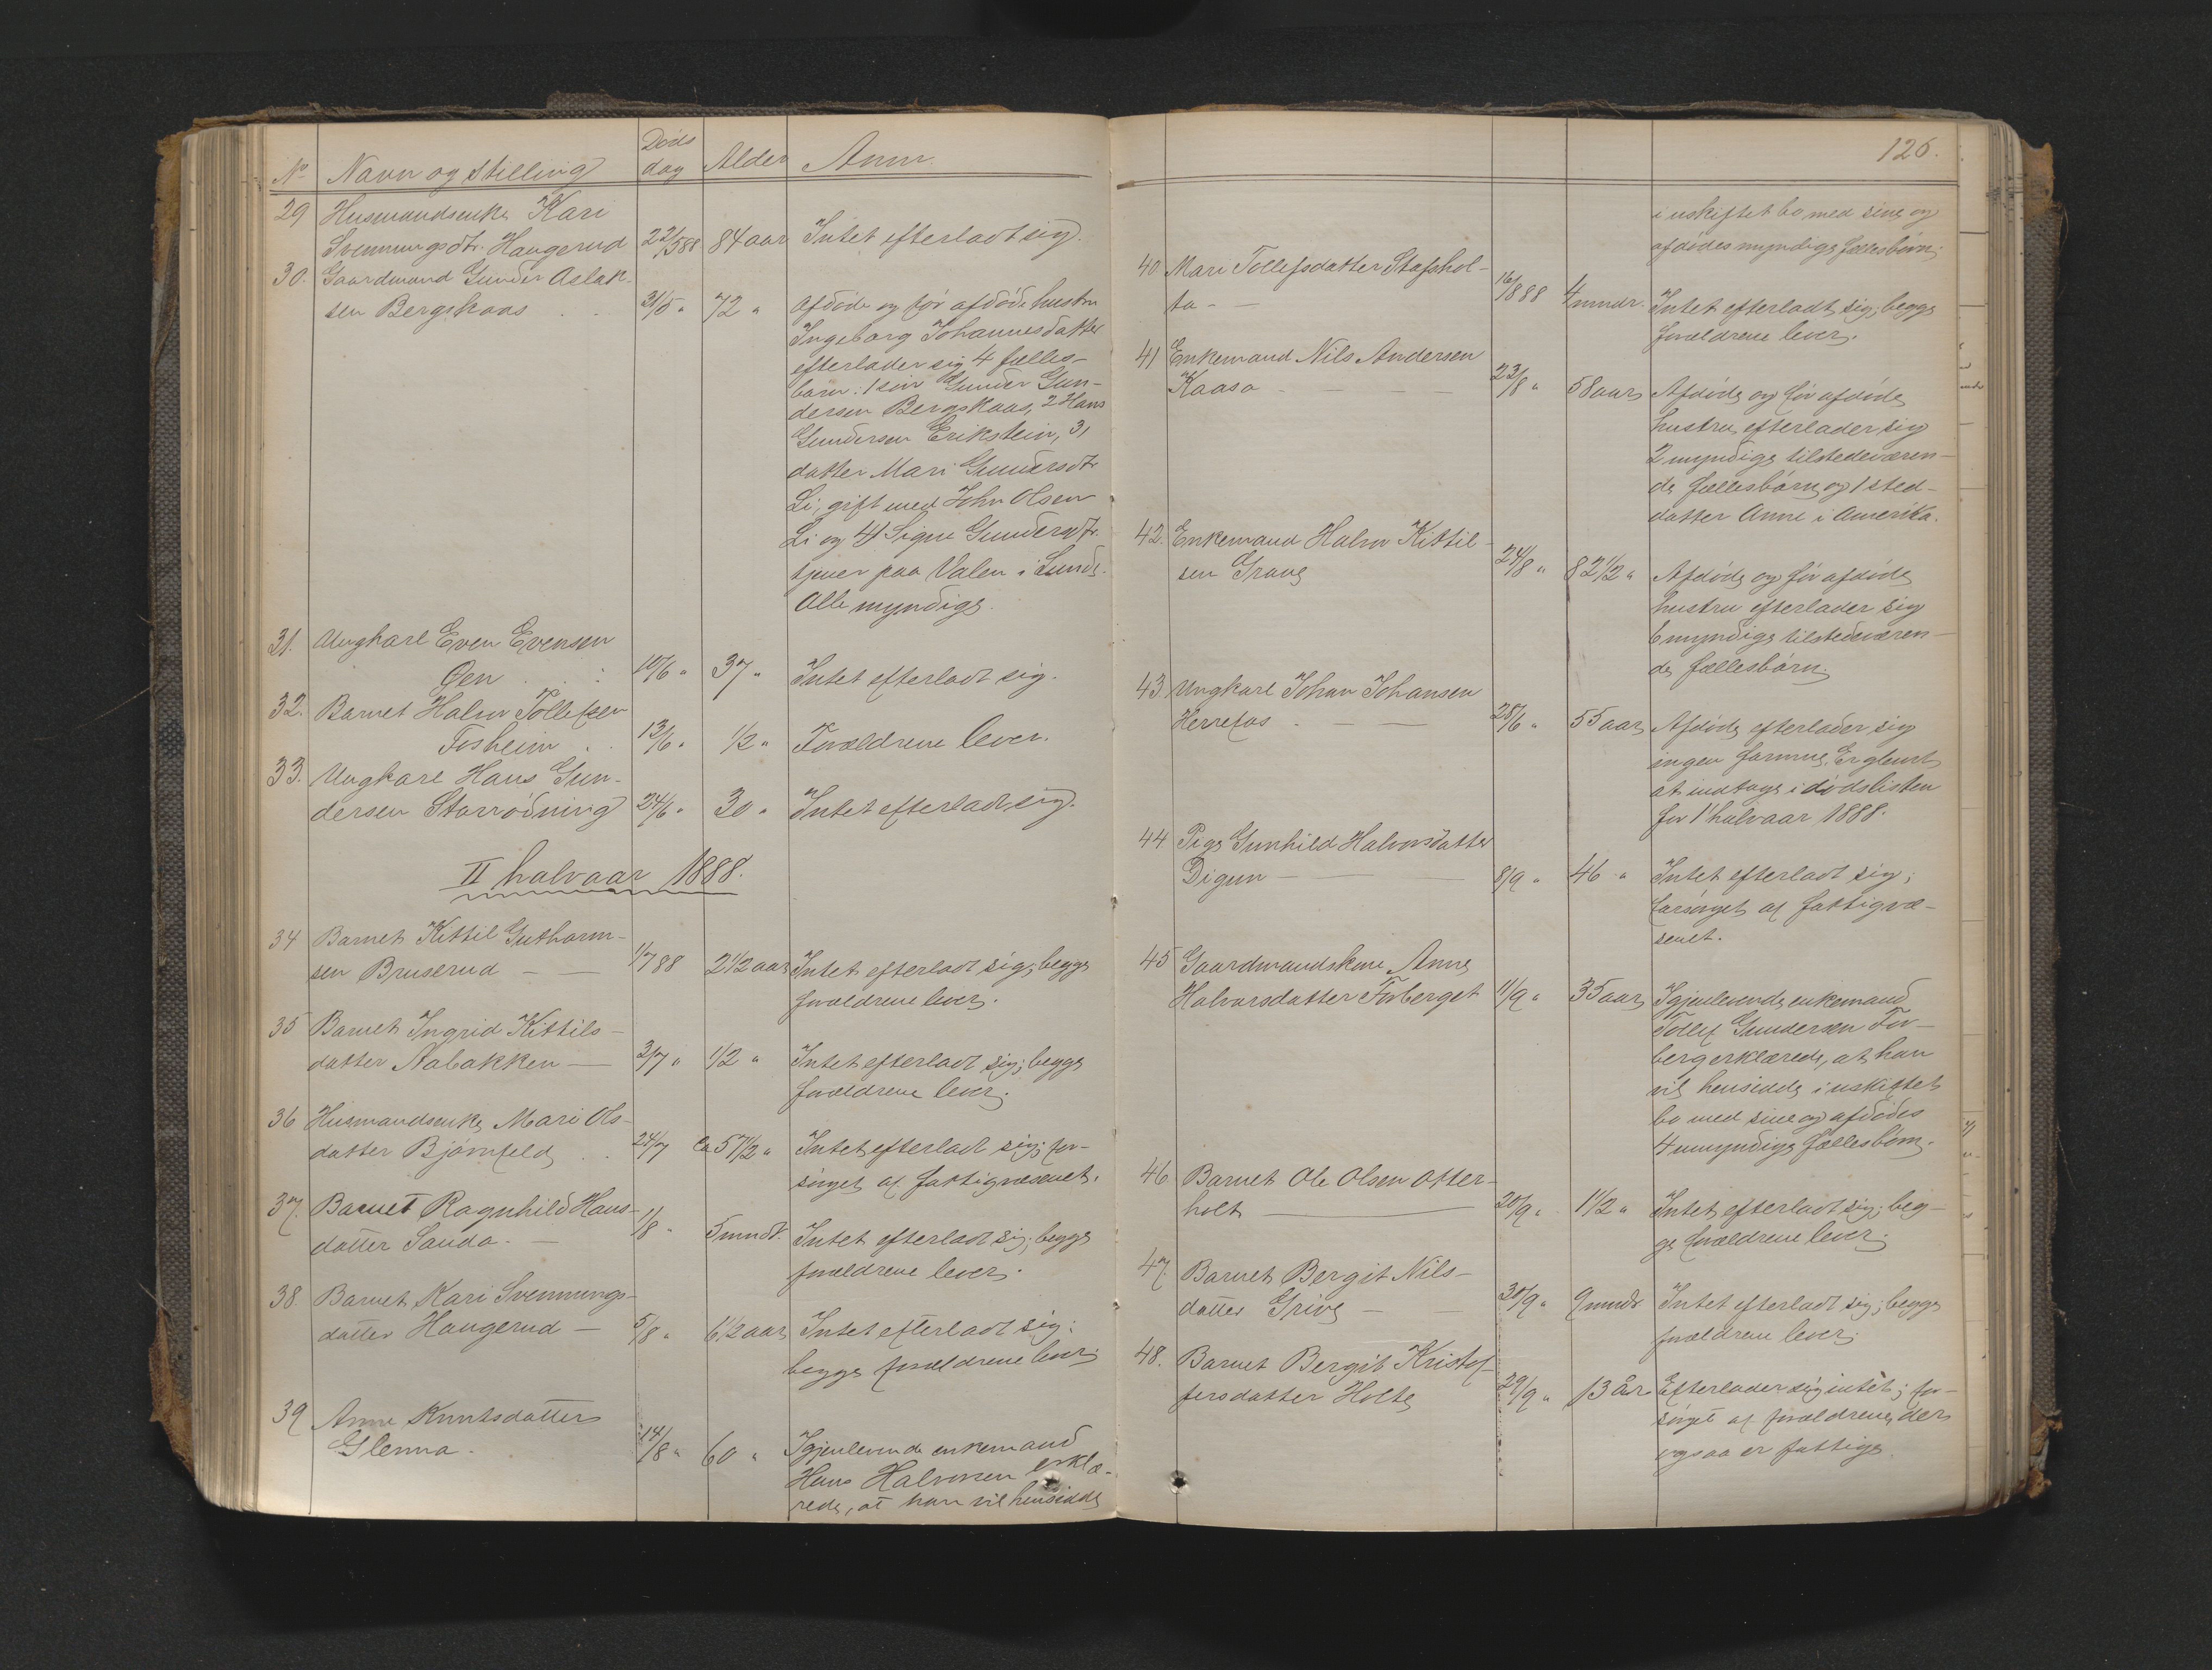 No Navn og stilling Døds dag Alder Anm.
29 Husmandsenke Kari
Svennungsdtr. Haugerud 22/5 88 84 aar Intet efterladt sig.
30. Gaardmand Gunder Aslak-
sen Bergskaas 31/5 " 72 " Afdøde og før afdøde hustru
Ingeborg Johannesdatter
efterlader sig 4 fælles-
børn: 1 søn Gunder Gun-
dersen Bergskaas, 2 Hans
Gundersen Erikstein, 3,
datter Mari Gundersdtr.
Li, gift med John Olsen
Li og 4) Signe Gundersdtr.
tjener paa Valen i Lunde.
Alle myndige.
31. Ungkarl Even Evensen
Øen 10/6 " 37 " Intet efterladt sig.
32. Barnet Halvor Tollefsen
Fosheim 13/6 " 1/2 " Forældrene lever.
33. Ungkarl Hans Gun-
dersen Storrødning 24/6 " 30 " Intet efterladt sig.
II halvaar 1888.
34 Barnet Kittil Guthorm-
sen Bruserud — — 1/7 88 2 1/2 aar Intet efterladt sig; begge
forældrene lever.
35 Barnet Ingrid Kittils-
datter Nabakken — 3/7 " 1/2 " Intet efterladt sig; begge
forældrene lever.
36 Husmandsenke Mari Ols-
datter Bjørnfeld 24/7 ca 57 1/2 " Intet efterladt sig; for-
sørget af fattigvæsenet.
37. Barnet Ragnhild Hans-
datter Sauda. — 1/8 " 5 mndr. Intet efterladt sig; begge
forældrene lever.
38. Barnet Kari Svennungs-
datter Haugerud — 5/8 " 6 1/2 aar Intet efterladt sig;
begge forældrene lever.
39 Anne Knutsdatter
Glenna. 14/8 " 60 " Igjenlevende enkemand
Hans Halvorsen erklæ-
rede, at han vil hensidde
126.
i uskiftet bo med sine og
afdødes myndige fællesbørn.
40. Mari Tollefsdatter Stafshol-
ta — 16/8 88 4 mndr. Intet efterladt sig; begge
forældrene lever.
41 Enkemand Nils Andersen
Kaasa — — — 23/8 " 58 aar Afdøde og før afdøde
hustru efterlader sig
2 myndige tilstedeværen-
de fællesbørn og 1 sted-
datter Anne i Amerika.
42. Enkemand Halvor Kittil-
sen Grave 24/8 " 82 1/2 " Afdøde og før afdøde
hustru efterlader sig
6 myndige tilstedeværen-
de fællesbørn.
43. Ungkarl Johan Johansen
Herrefos — — 28/6 " 55 aar Afdøde efterlader sig
ingen formue. Er glemt
at indtage i dødslisten
for 1' halvaar 1888.
44 Pige Gunhild Halvorsdatter
Digun — — 8/9 " 46 " Intet efterladt sig;
forsørget af fattigvæ-
senet.
45 Gaardmandskone Anne
Halvorsdatter Forberget 11/9 " 35 aar Igjenlevende enkemand
Tollef Gundersen For-
berg erklærede, at han
vil hensidde i uskiftet
bo med sine og afdødes
4 umyndige fællesbørn.
46 Barnet Ole Olsen Otter-
holt — 20/9 " 1 1/2 " Intet efterladt sig; beg-
ge forældrene lever.
47. Barnet Bergit Nils-
datter Grive — — 30/9 " 9 mndr Intet efterladt sig; begge
forældrene lever.
48. Barnet Bergit Kristof-
fersdatter Holte 29/9 " 13 år. Efterlader sig intet; for-
sørget af forældrene, der
ogsaa er fattige.